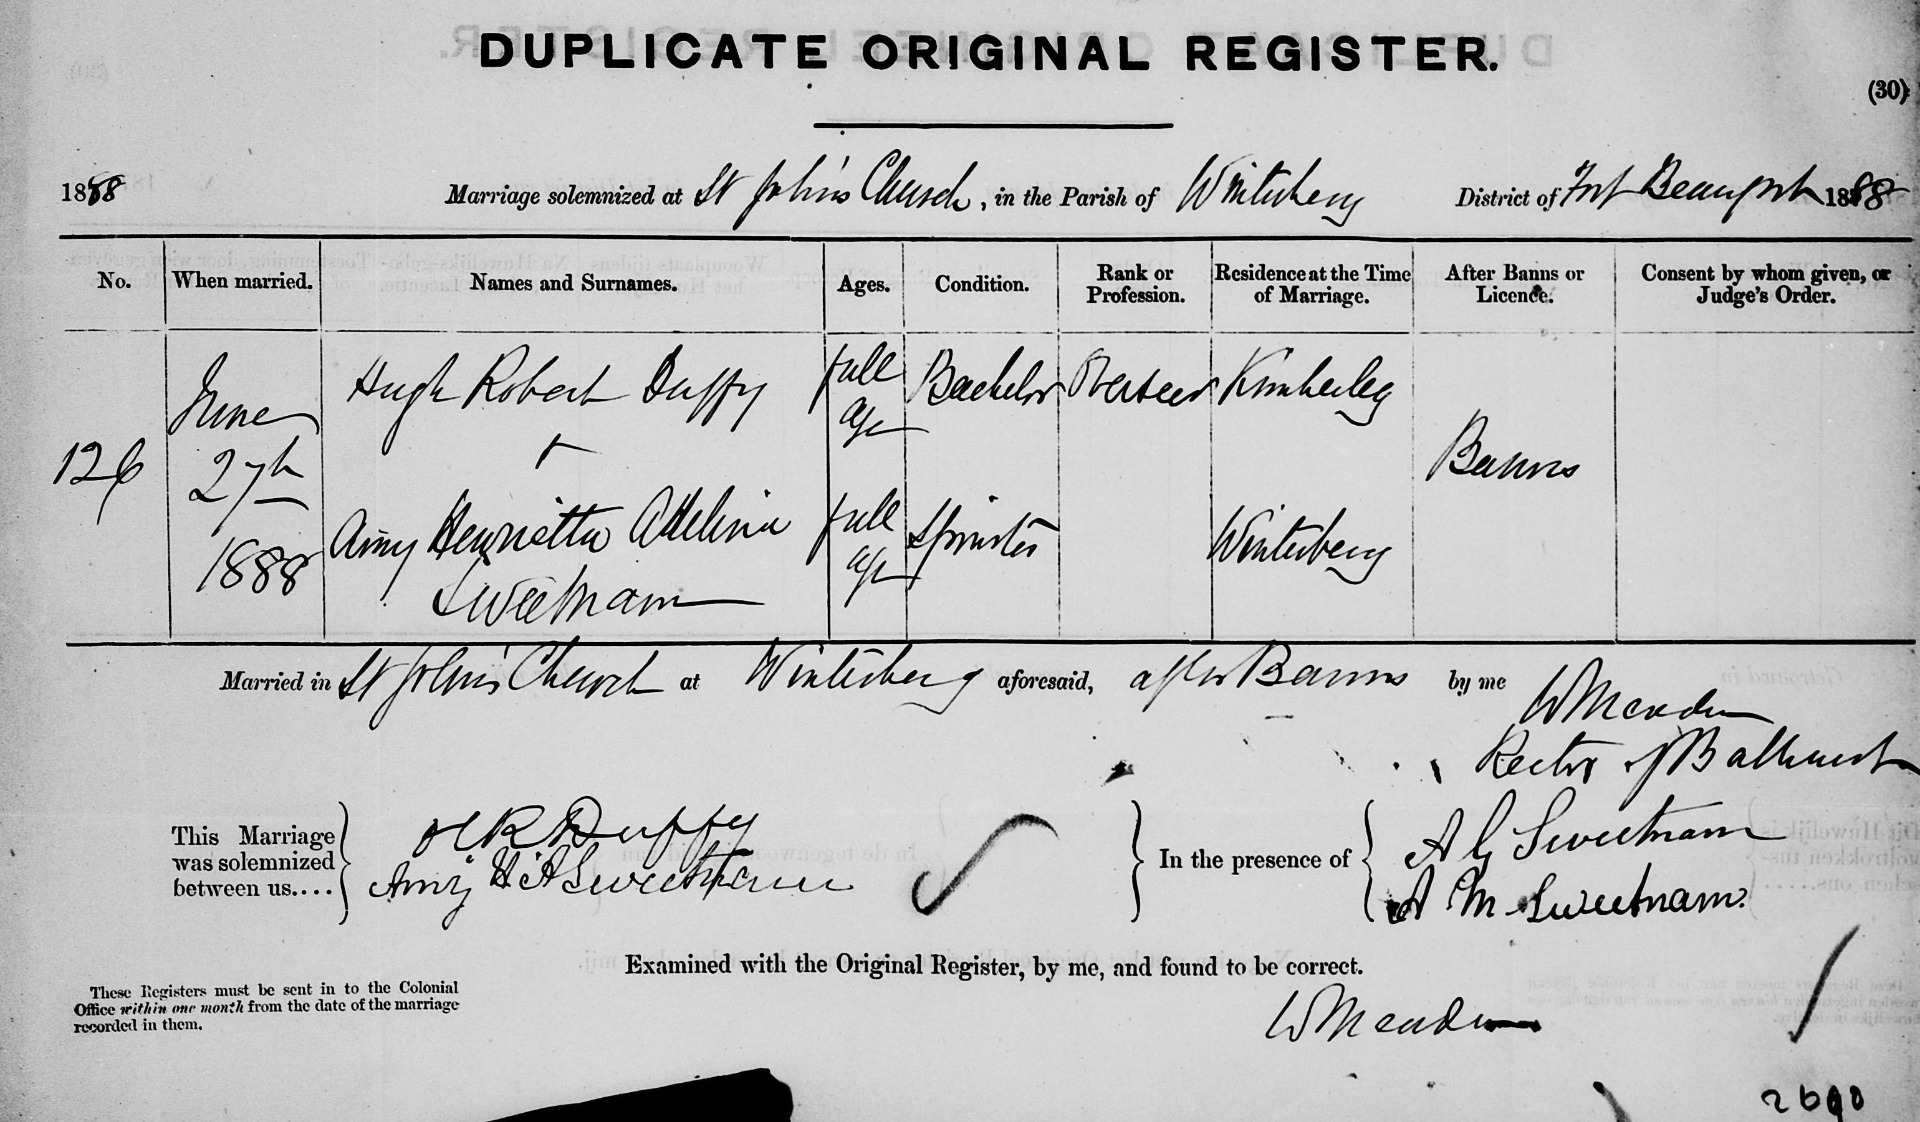 DUPLICATE ORIGINAL REGISTER.
(30)
1888 Marriage solemnized at St John's Church, in the Parish of Winterberg District of Fort Beaufort 1888
No. When married. Names and Surnames. Ages. Condition. Rank or Profession. Residence at the Time of Marriage. After Banns or Licence. Consent by whom given, or Judge's Order.
126 June 27th 1888
Hugh Robert Duffy full age Bachelor Overseer Kimberley
+
Banns
Amy Henrietta Adelina Sweetnam full age Spinster Winterberg
Married in St John's Church at Winterberg aforesaid, after Banns by me W Meaden
Rector of Bathurst
This Marriage was solemnized between us....
H R Duffy
Amy H A Sweetnam
In the presence of
A G Sweetnam
A M Sweetnam.
Examined with the Original Register, by me, and found to be correct.
W Meaden
These Registers must be sent in to the Colonial
Office within one month from the date of the marriage
recorded in them.